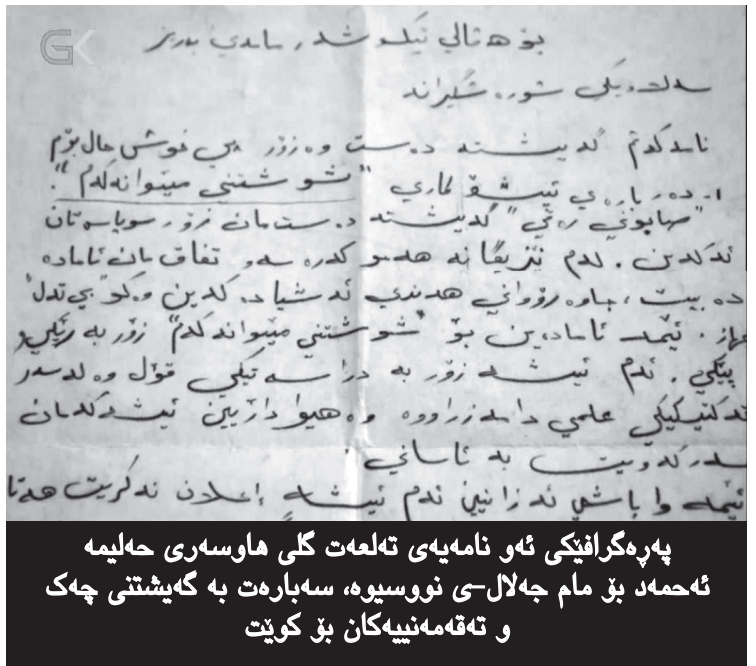 GK
بۆ هڤالی تێکۆشەر مامەی بەرێز
سەلامێکی شۆڕشگێرانە
نامەکەم گەیشتە دەست وە زۆر پێی خۆش حال بۆم
١. دەربارەی ئیشۆ لماری "شوشتنی میتوانەکەم".
"صابونی رەقی" گەیشتە دەستمان زۆر سوپاستان
ئەکەین. لەم نزیکانە هەموو کەرەسەو تفاقمان ئامادە
دەبێت، چاوەڕوانی هەندێ ئەشیا دەکەین وەکو "بێ تەل"
جهاز. ئێمە ئامادەین بۆ "شوشتنی میتوانەکەم" زۆر بە رێکی و
پێکی. ئەم ئیشە زۆر بە دراسەتێکی قوڵ وە لەسەر
تەکتیکێکی علمی دامەزراوە وە هیوادارین ئیشەکەمان
سەرکەوێت بە ئاسانی.
ئێمە وا باشی ئەزانین ئەم ئیشە إعلان نەکرێت هەتا
پەڕەگرافێکی ئەو نامەیەی تەلعەت گلی هاوسەری حەلیمە
ئەحمەد بۆ مام جەلال–ی نووسیوە، سەبارەت بە گەیشتنی چەک
و تەقەمەنییەکان بۆ کوێت